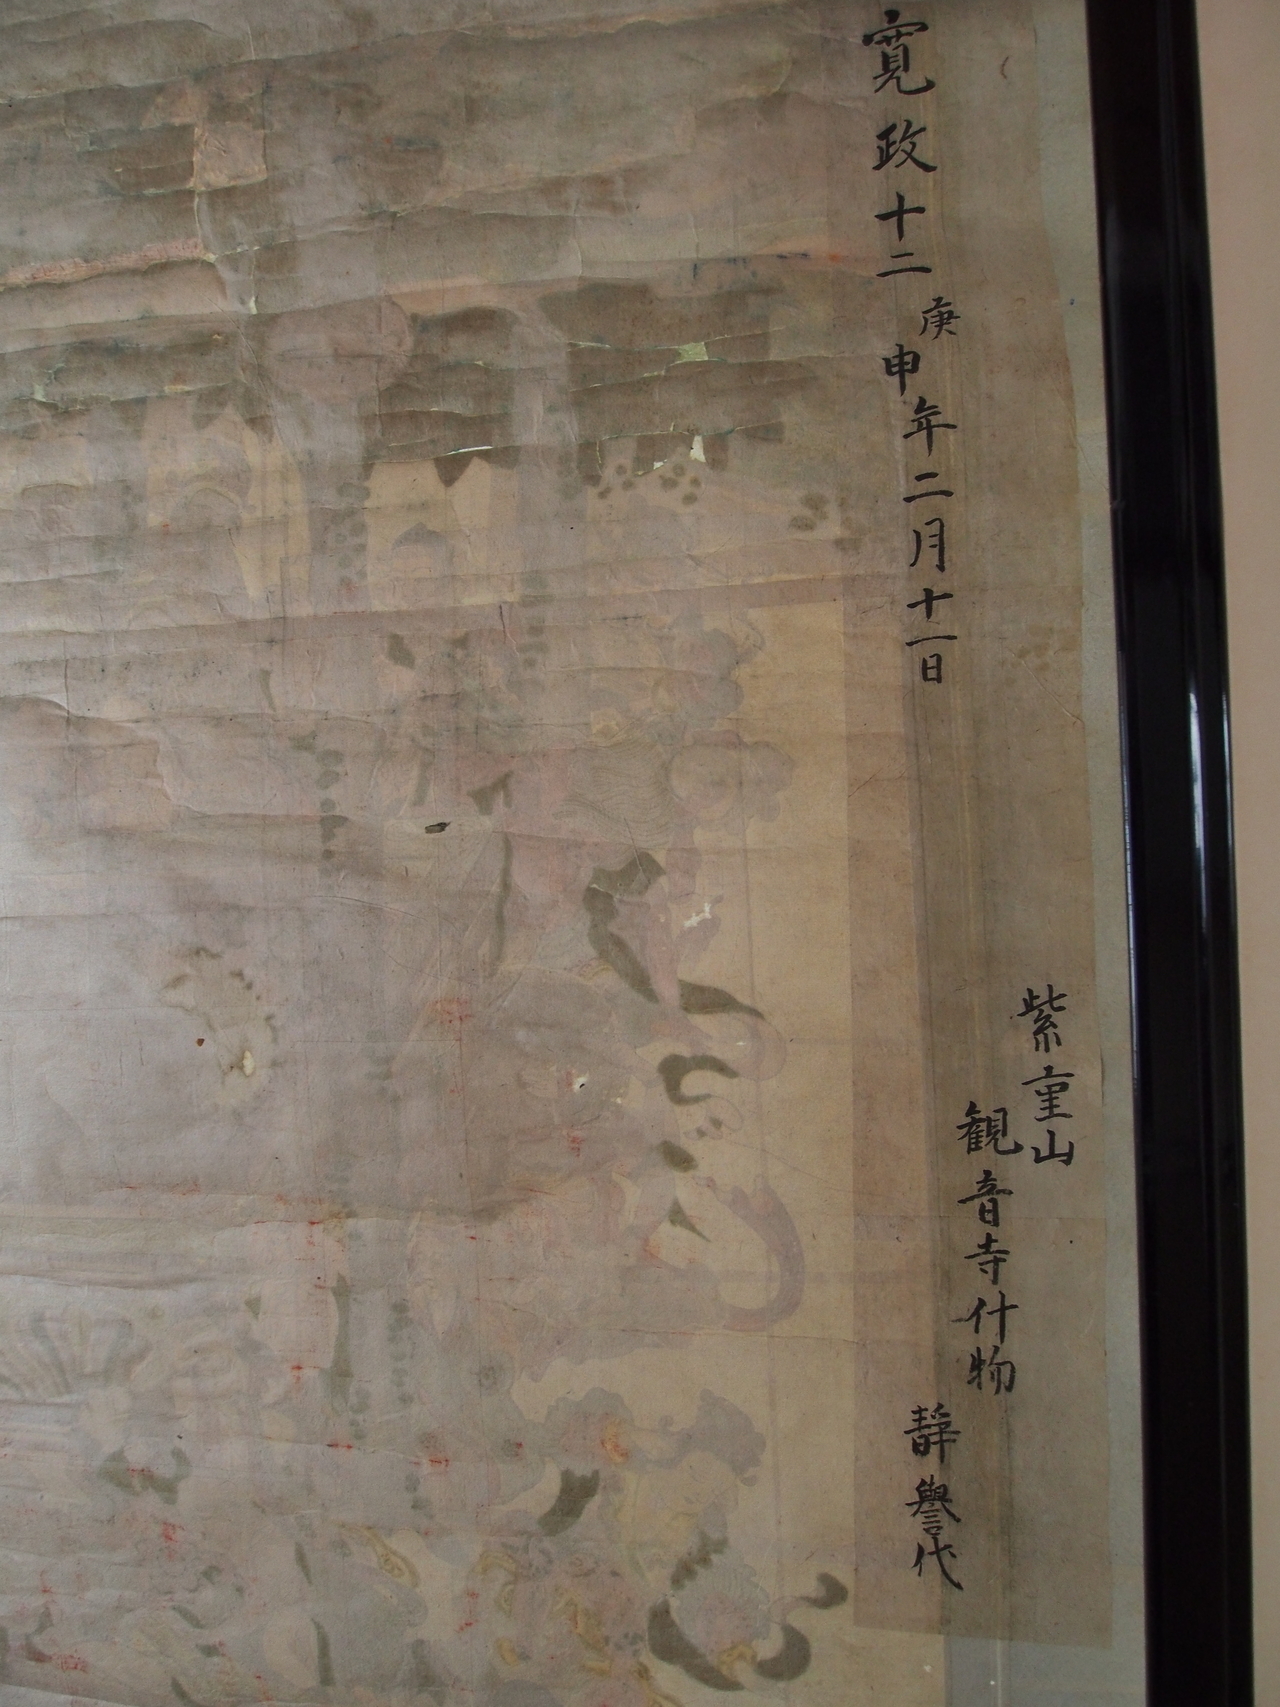 紫重山
観音寺什物
寛政十二庚申年二月十一日
靜譽代